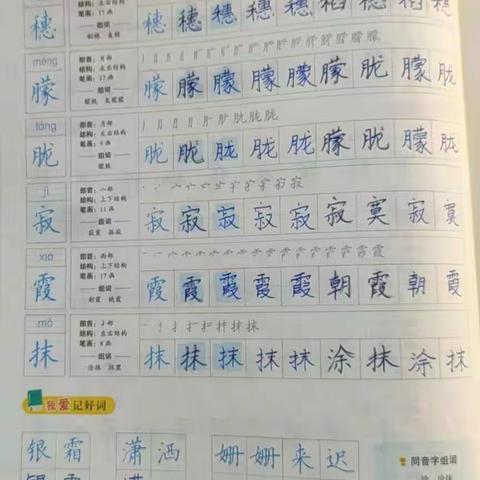 穗 结构：左右结构 穗 穗 穗 穗 穗 稻 穗 稻
笔画：17画
组词
méng 部首：月部
朦 结构：左右结构 朦 朦 朦 朦 朦 胧 朦 胧
笔画：17画
组词
lóng 部首：月部
胧 结构：左右结构 胧 胧 胧 胧 胧 朦 胧 朦 胧
笔画：9画
组词
朦胧
jì 部首：宀部
寂 结构：上下结构 寂 寂 寂 寂 寂 寂 寞 寂 寞
笔画：11画
组词
寂寞 孤寂
xiá 部首：雨部
霞 结构：上下结构 霞 霞 霞 霞 霞 朝 霞 朝 霞
笔画：17画
组词
朝霞 晚霞
mǒ 部首：扌部
抹 结构：左右结构 抹 抹 抹 抹 抹 涂 抹 涂 抹
笔画：8画
组词
涂抹 抹黑
我爱记好词
银 霜 潇 洒 姗 姗 来 迟
同音字组词